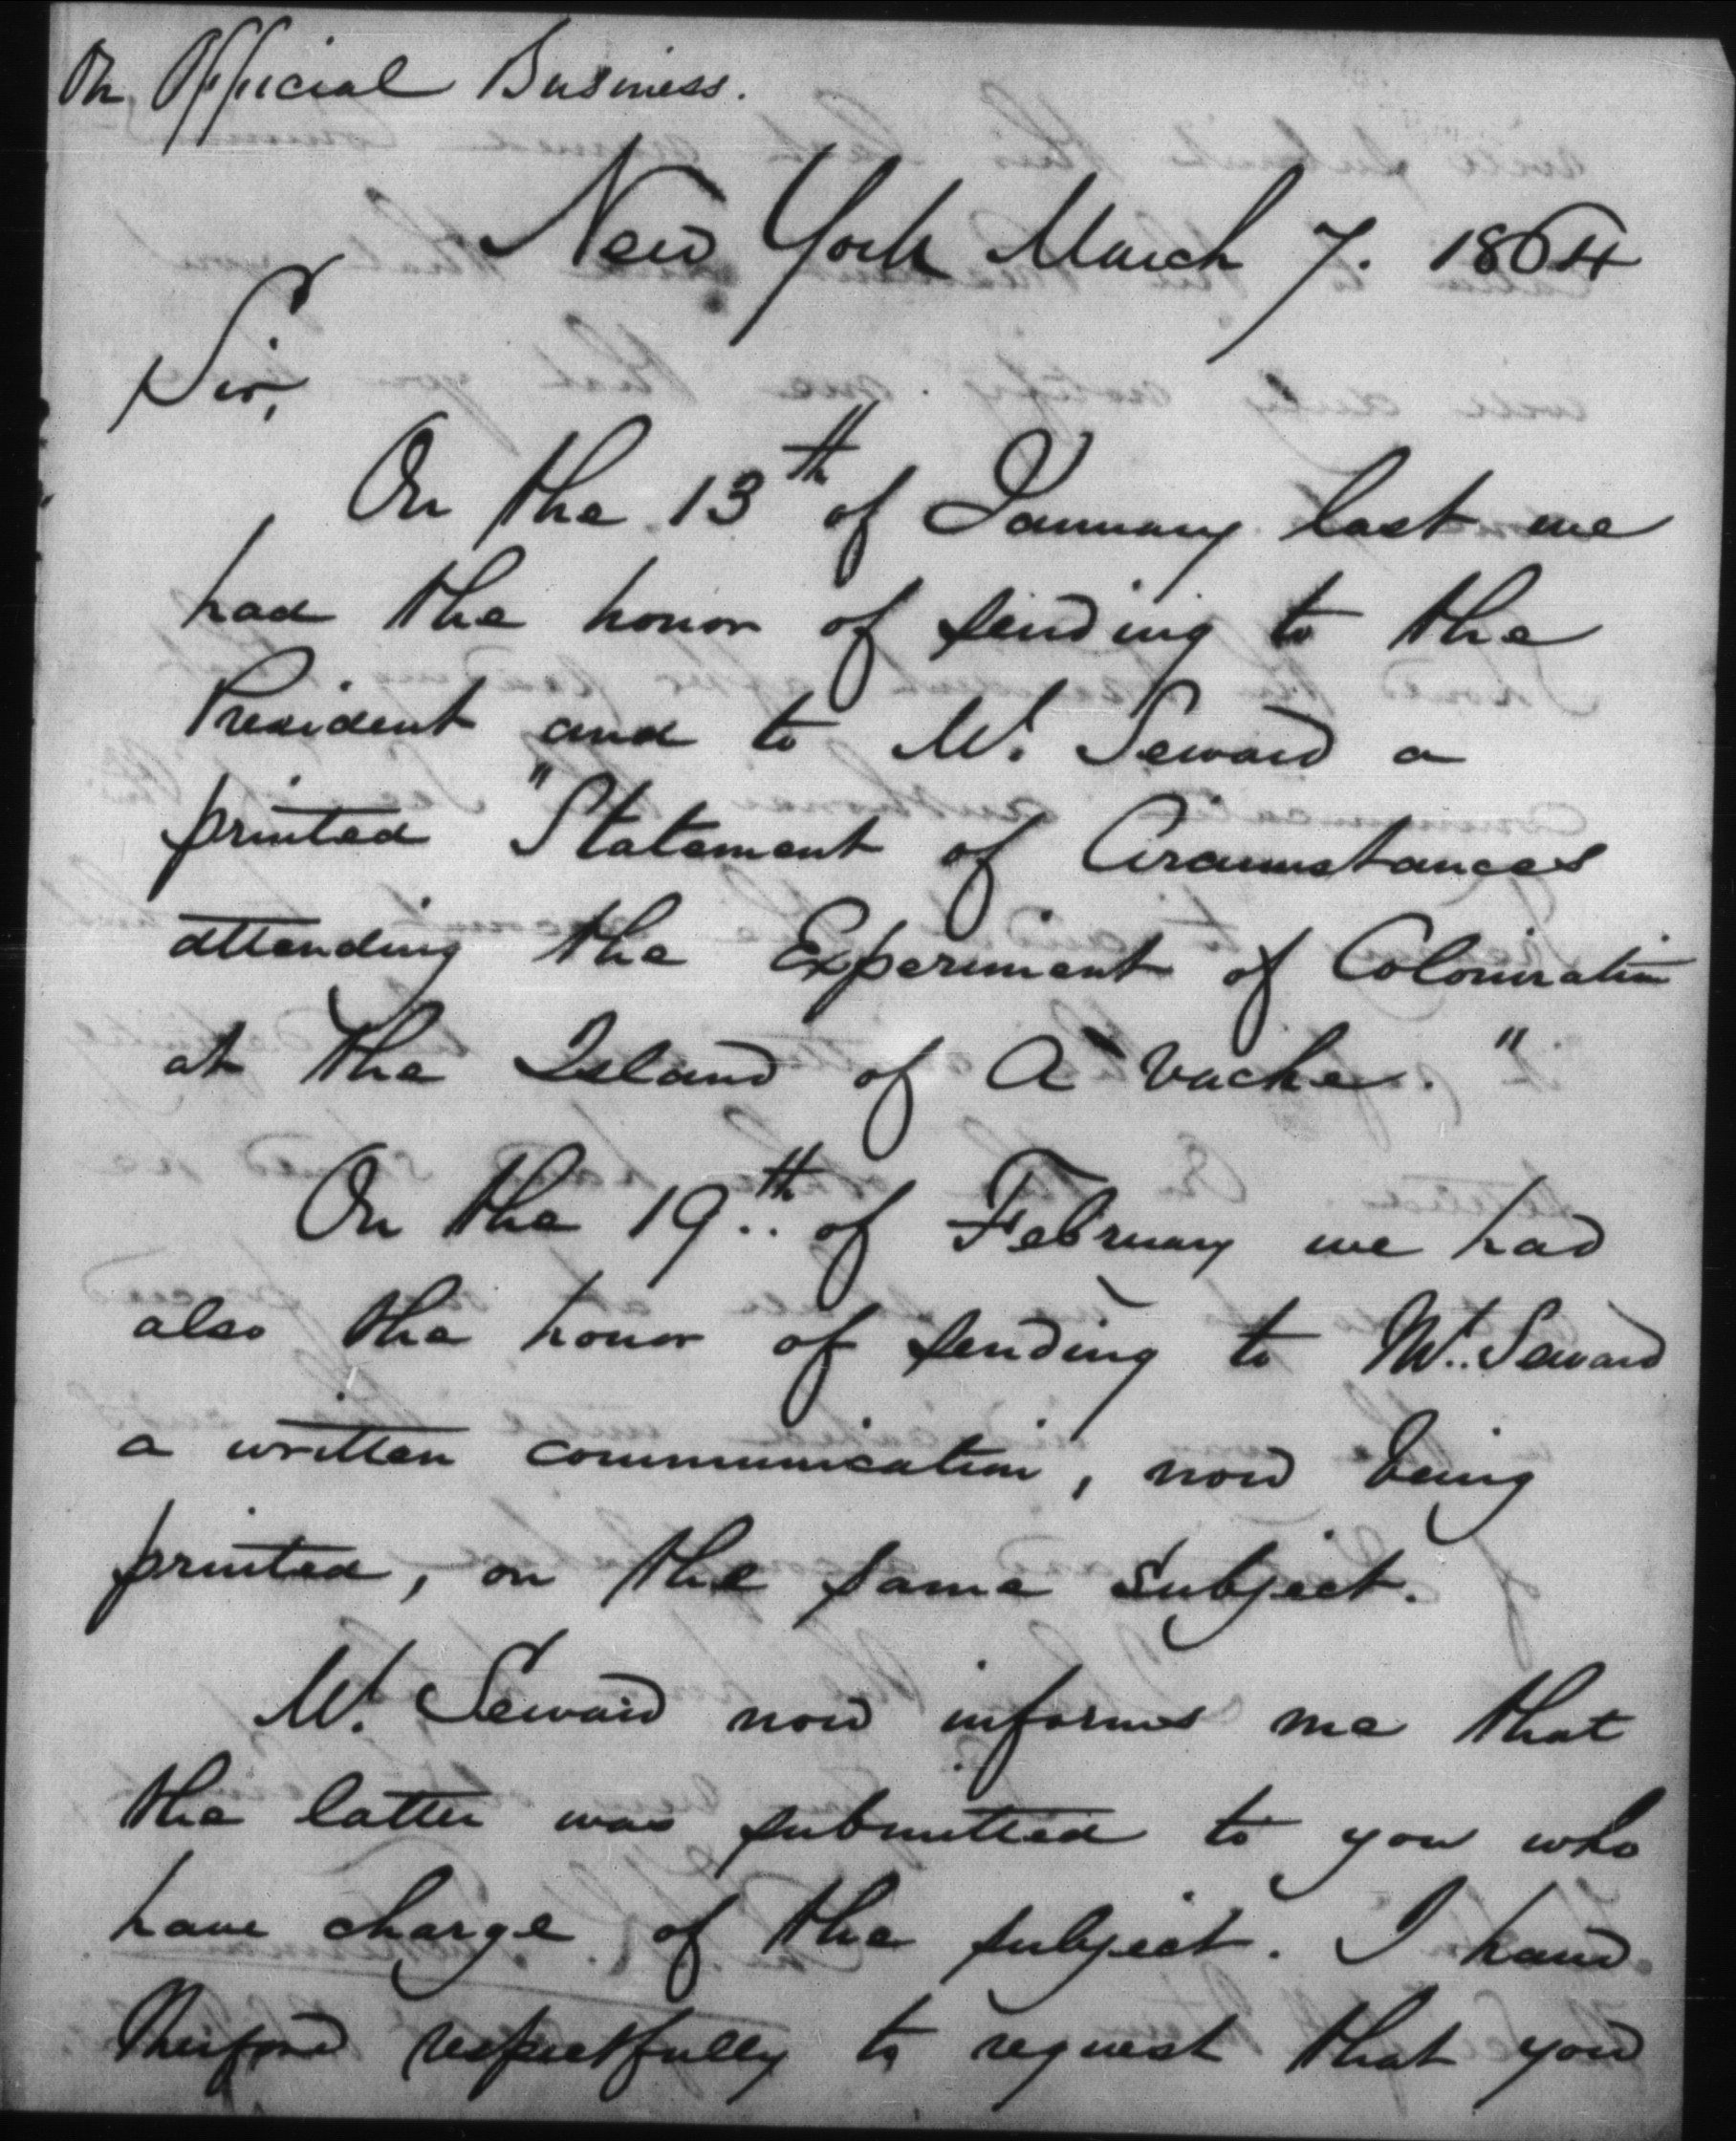 On Official Business.
New York March 7. 1864
Sir,
On the 13th of January last we
had the honor of sending to the
President and to Mr. Seward a
printed "Statement of Circumstances
attending the Experiment of Colonization
at the Island of A Vache."
On the 19th of February we had
also the honor of sending to Mr. Seward
a written communication, now being
printed, on the same subject.
Mr. Seward now informs me that
the latter was submitted to you who
have charge of the subject. I have
therefore respectfully to request that you